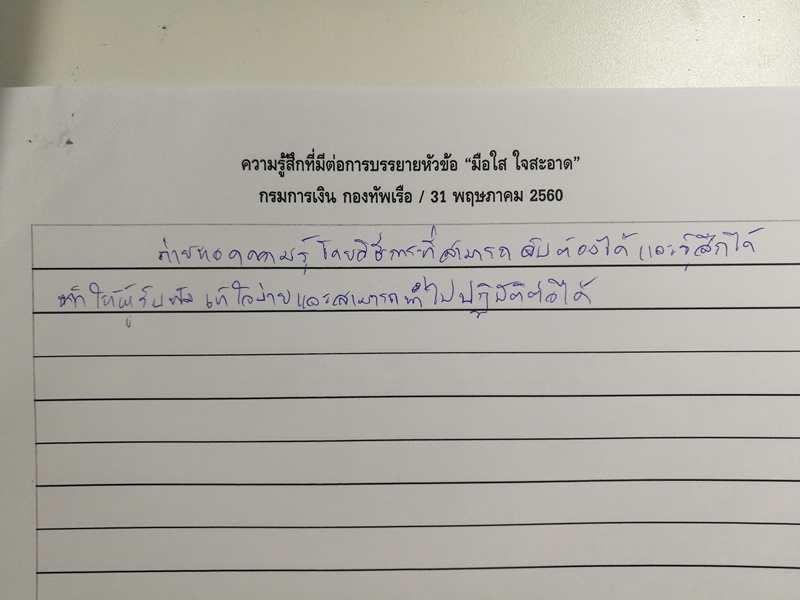 ความรู้สึกที่มีต่อการบรรยายหัวข้อ “มือใส ใจสะอาด”
กรมการเงิน กองทัพเรือ / 31 พฤษภาคม 2560
ถ่ายทอดความรู้ โดยวิธีการที่สามารถ จับต้องได้ และรู้สึกได้
ทำให้ผู้รับฟัง เข้าใจง่าย และสามารถนำไปปฏิบัติต่อได้